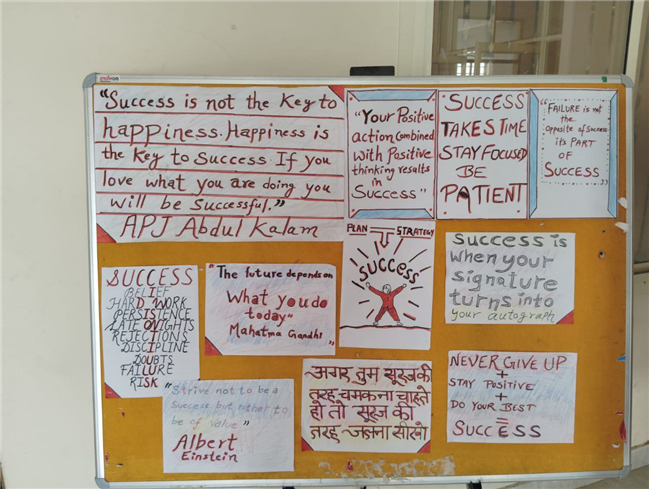 "Success is not the Key to
happiness. Happiness is
the Key to Success. If you
love what you are doing you
will be Successful."
APJ Abdul Kalam
"Your Positive
action Combined
with Positive
thinking results
in
Success"
SUCCESS
TAKES TIME
STAY FOCUSED
BE
PATIENT
"FAILURE is not
the
opposite of Success
it's PART
OF
SUCCESS"
PLAN STRATEGY
SUCCESS
SUCCESS
BELIEF
HARD WORK
PERSISTENCE
LATE NIGHTS
REJECTIONS
DISCIPLINE
DOUBTS
FAILURE
RISK
"The future depends on
What you do
today"
Mahatma Gandhi
Success is
when your
signature
turns into
your autograph
"Strive not to be a
success but rather to
be of value"
Albert
Einstein
अगर तुम सूरज की
तरह चमकना चाहते
हो तो सूरज की
तरह जलना सीखो
NEVER GIVE UP
+
STAY POSITIVE
+
DO YOUR BEST
=
SUCCESS